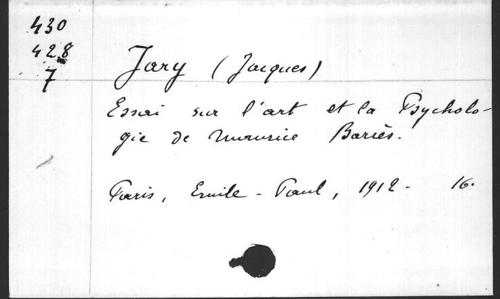 430
428
7
Jary (Jacques)
Essai sur l'art et la Psycholo-
gie de Maurice Barrès.
Paris, Emile-Paul, 1912 - 16.